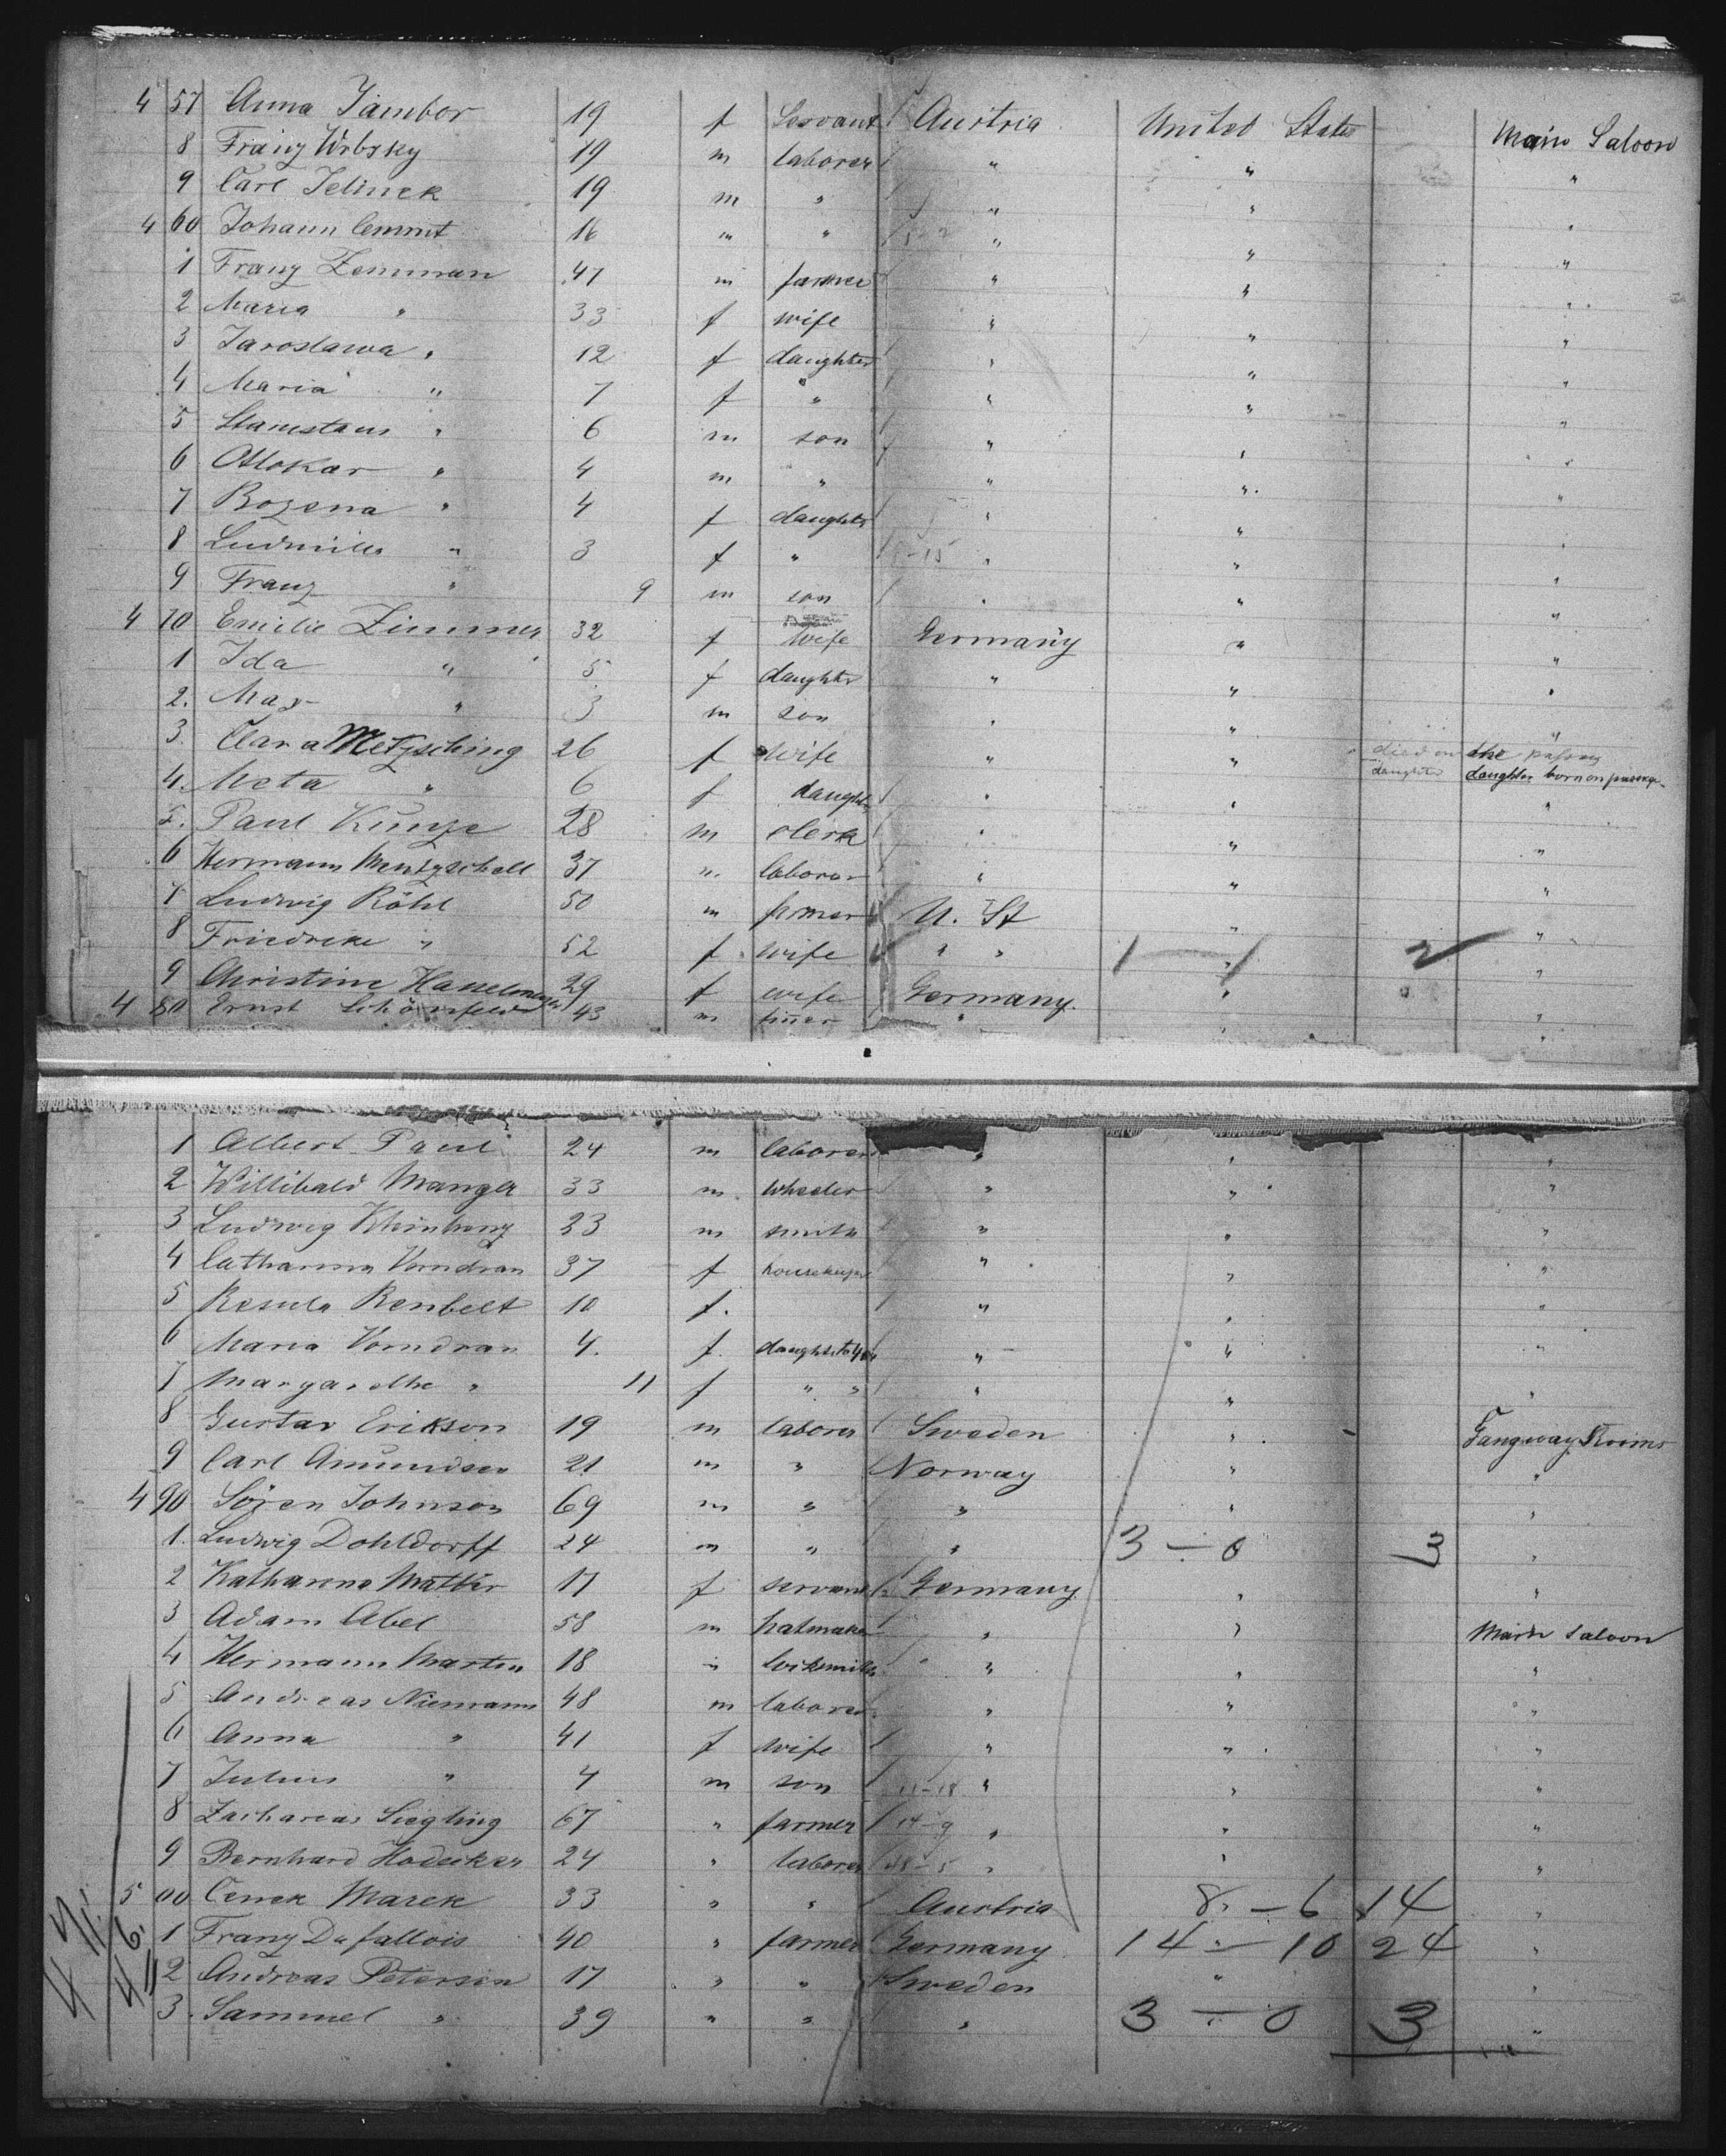 4 57 Anna Jambor 19 f Servant Austria United States Main Saloon
8 Franz Wrbsky 19 m laborer " " "
9 Carl Jelinek 19 m " " " "
4 60 Johann 16 " " " " "
1 Franz Zemman 47 m farmer " " "
2 Maria " 33 f wife " " "
3 Jaroslawa " 12 f daughter " " "
4 Maria " 7 f " " " "
5 Stanislaus " 6 m son " " "
6 Ottokar " 4 m " " " "
7 Bozena " 4 f daughter " " "
8 Ludmilla " 3 f " " " "
9 Franz " 9 m son " " "
4 70 Emilie Zimmer 32 f wife Germany " "
1 Ida " 5 f daughter " " "
2. Max " 3 m son " " "
3. Clara Metzsching 26 f wife " " died on the passag
4. Meta " 6 f daught " " daughter daughter born on passage
5. Paul Kunze 28 m clerk " " "
6 Hermann Mentzschell 37 " labore " " "
7 Ludwig Röhl 50 m farmer U. St " "
8 Friedrike " 52 f wife " " 1 — 1 2 "
9 Christine 29 f wife Germany. " "
4 80 Ernst Schönfeld 43 m " " "
1 Albert Paul 24 m laborer " " "
2 Willibald Manger 33 m wheeler " " "
3 Ludwig 23 m smith " " "
4 Catharina Vorndran 37 f housekeeper " " "
5 Renbelt 10 f. " " "
6 Maria Vorndran 4. f. daught. to 484 " " "
7 Margarethe " 11 f " " " " "
8 Gustav Erikson 19 m laborer Sweden " Gangway Rooms
9 Carl Amundsen 21 m " Norway " "
4 90 Sören Johnson 69 m " " " "
1. Ludwig Dohldorff 24 m " " 3 — 0 3 "
2 Katharina Matter 17 f servant Germany " "
3 Adam Abel 58 m hatmaker " " Main Saloon
4 Hermann Martin 18 " " " "
5 Andreas Niemann 48 m laborer " " "
6 Anna " 41 f wife " " "
7 Julius " 4 m son 11-18 " " "
8 Zacharias Siegling 67 " farmer 14-9 " " "
9 Bernhard Hodecker 24 " laborer " " "
5 00 Cenek Marek 33 " " Austria 8. — 6 14 "
1 Franz Dufallois 40 " farmer Germany 14 — 10 24 "
2 Andreas Petersen 17 " " Sweden " "
3. Sammel " 39 " " " 3 — 0 3 "